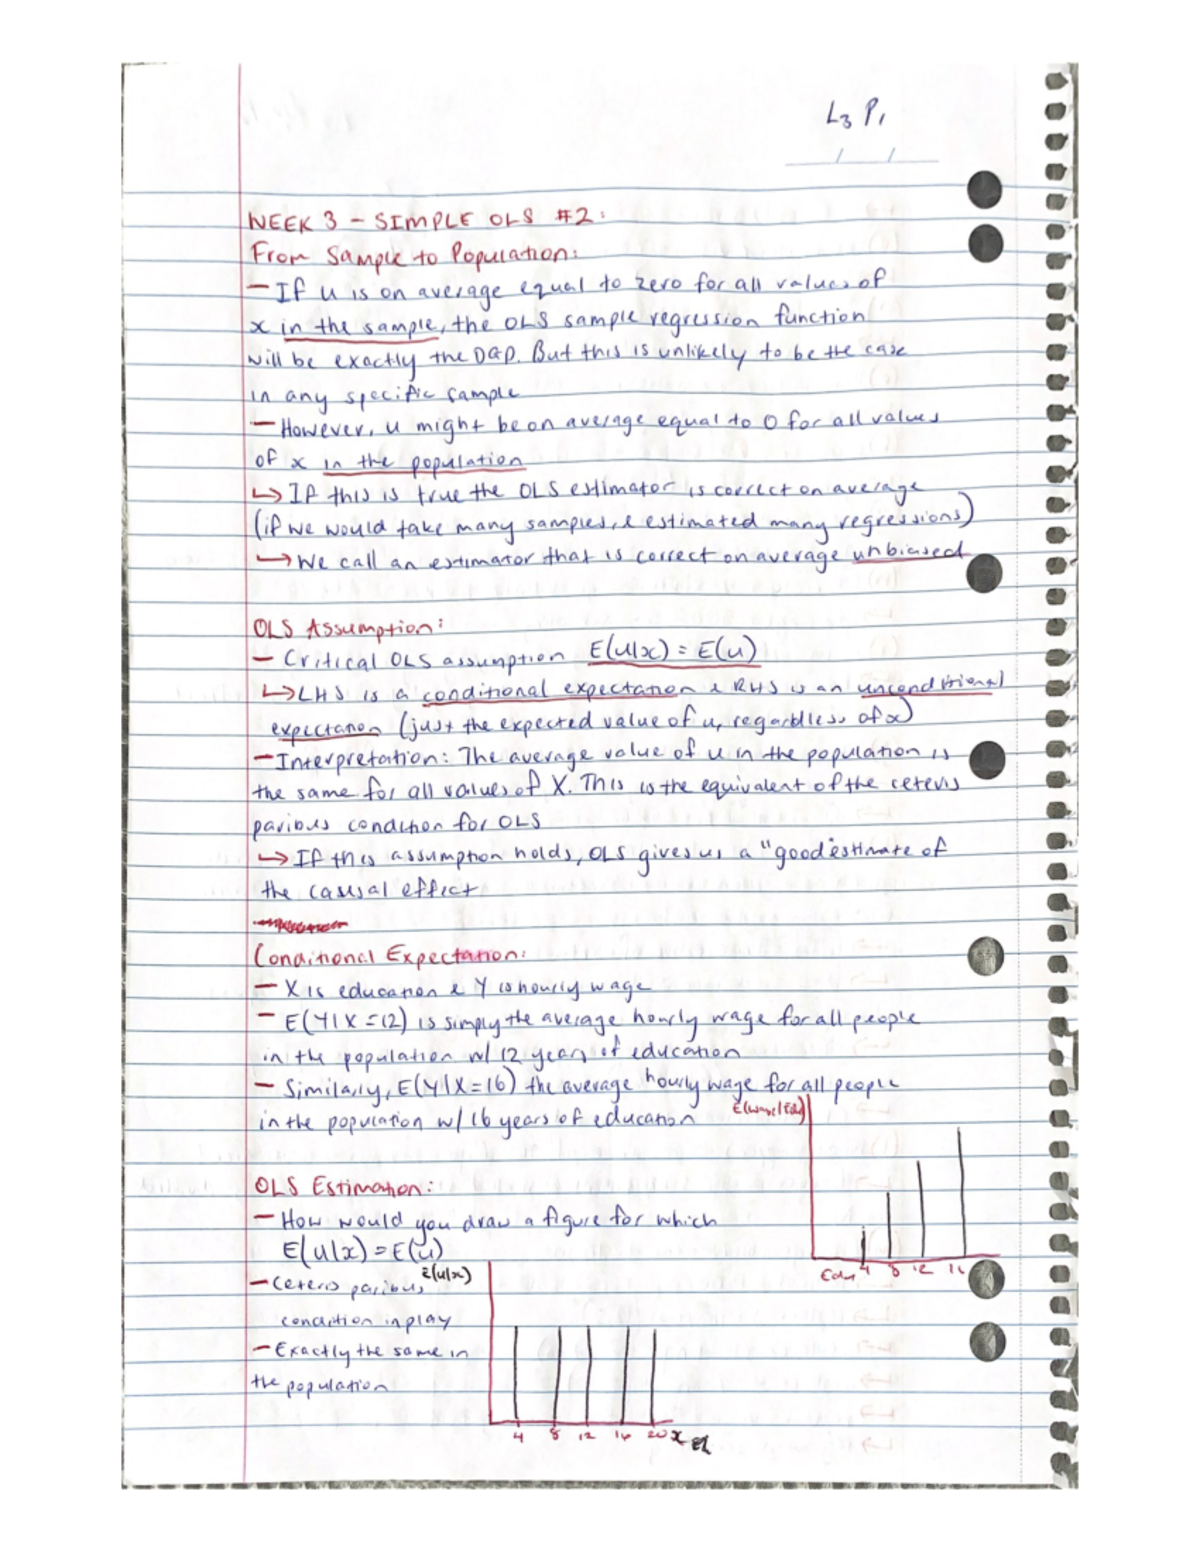 L3 P1
/ /
WEEK 3 - SIMPLE OLS #2:
From Sample to Population:
- If u is on average equal to zero for all values of
x in the sample, the OLS sample regression function
will be exactly the DGP. But this is unlikely to be the case
in any specific sample
- However, u might be on average equal to 0 for all values
of x in the population
↳ If this is true the OLS estimator is correct on average
(if we would take many samples, & estimated many regressions)
↳ We call an estimator that is correct on average unbiased
OLS Assumption:
- Critical OLS assumption E(u|x) = E(u)
↳ LHS is a conditional expectation & RHS is an unconditional
expectation (just the expected value of u, regardless of x)
- Interpretation: The average value of u in the population is
the same for all values of X. This is the equivalent of the ceteris
paribus condition for OLS
↳ If this assumption holds, OLS gives us a "good" estimate of
the causal effect
Conditional Expectation:
- X is education & Y is hourly wage
- E(Y|X=12) is simply the average hourly wage for all people
in the population w/ 12 years of education
- Similarly, E(Y|X=16) the average hourly wage for all people
in the population w/ 16 years of education
E(wage|Ed)
Educ 4 8 12 16
OLS Estimation:
- How would you draw a figure for which
E(u|x) = E(u)
- Ceteris paribus
condition in play
- Exactly the same in
the population
E(u|x)
4 8 12 16 20 x